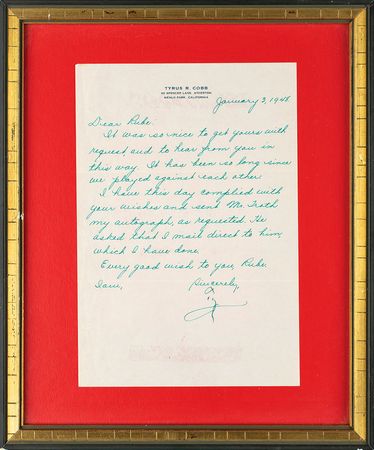 TYRUS R. COBB
48 SPENCER LANE, ATHERTON
MENLO PARK, CALIFORNIA
January 3, 1948
Dear Rube:
It was so nice to get yours with
request, and to hear from you in
this way. It has been so long since
we played against each other.
I have this day complied with
your wishes and send Mr. Troth
my autograph, as requested. He
asked that I mail direct to him,
which I have done.
Every good wish to you, Rube.
I am, Sincerely,